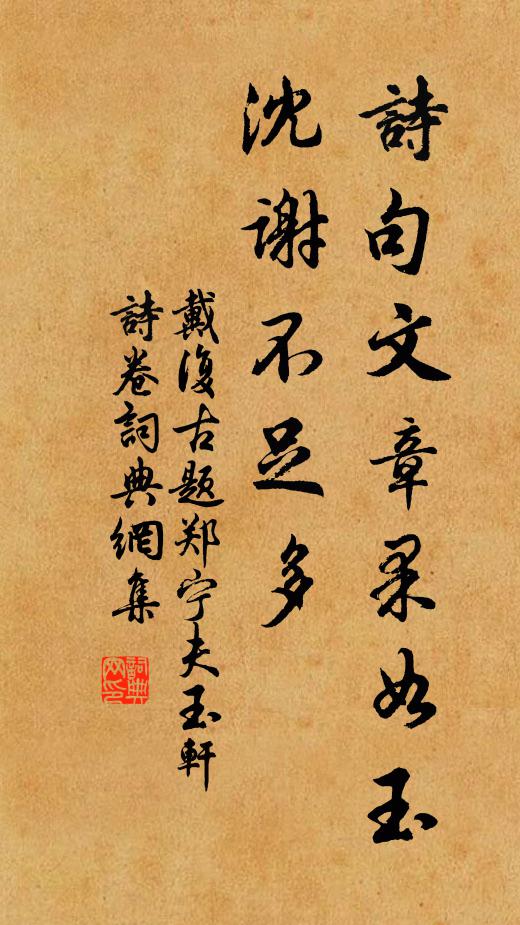 詩句文章果如玉
沈謝不足多
戴復古题郑宁夫玉軒
詩卷詞典網集
詞典
网印